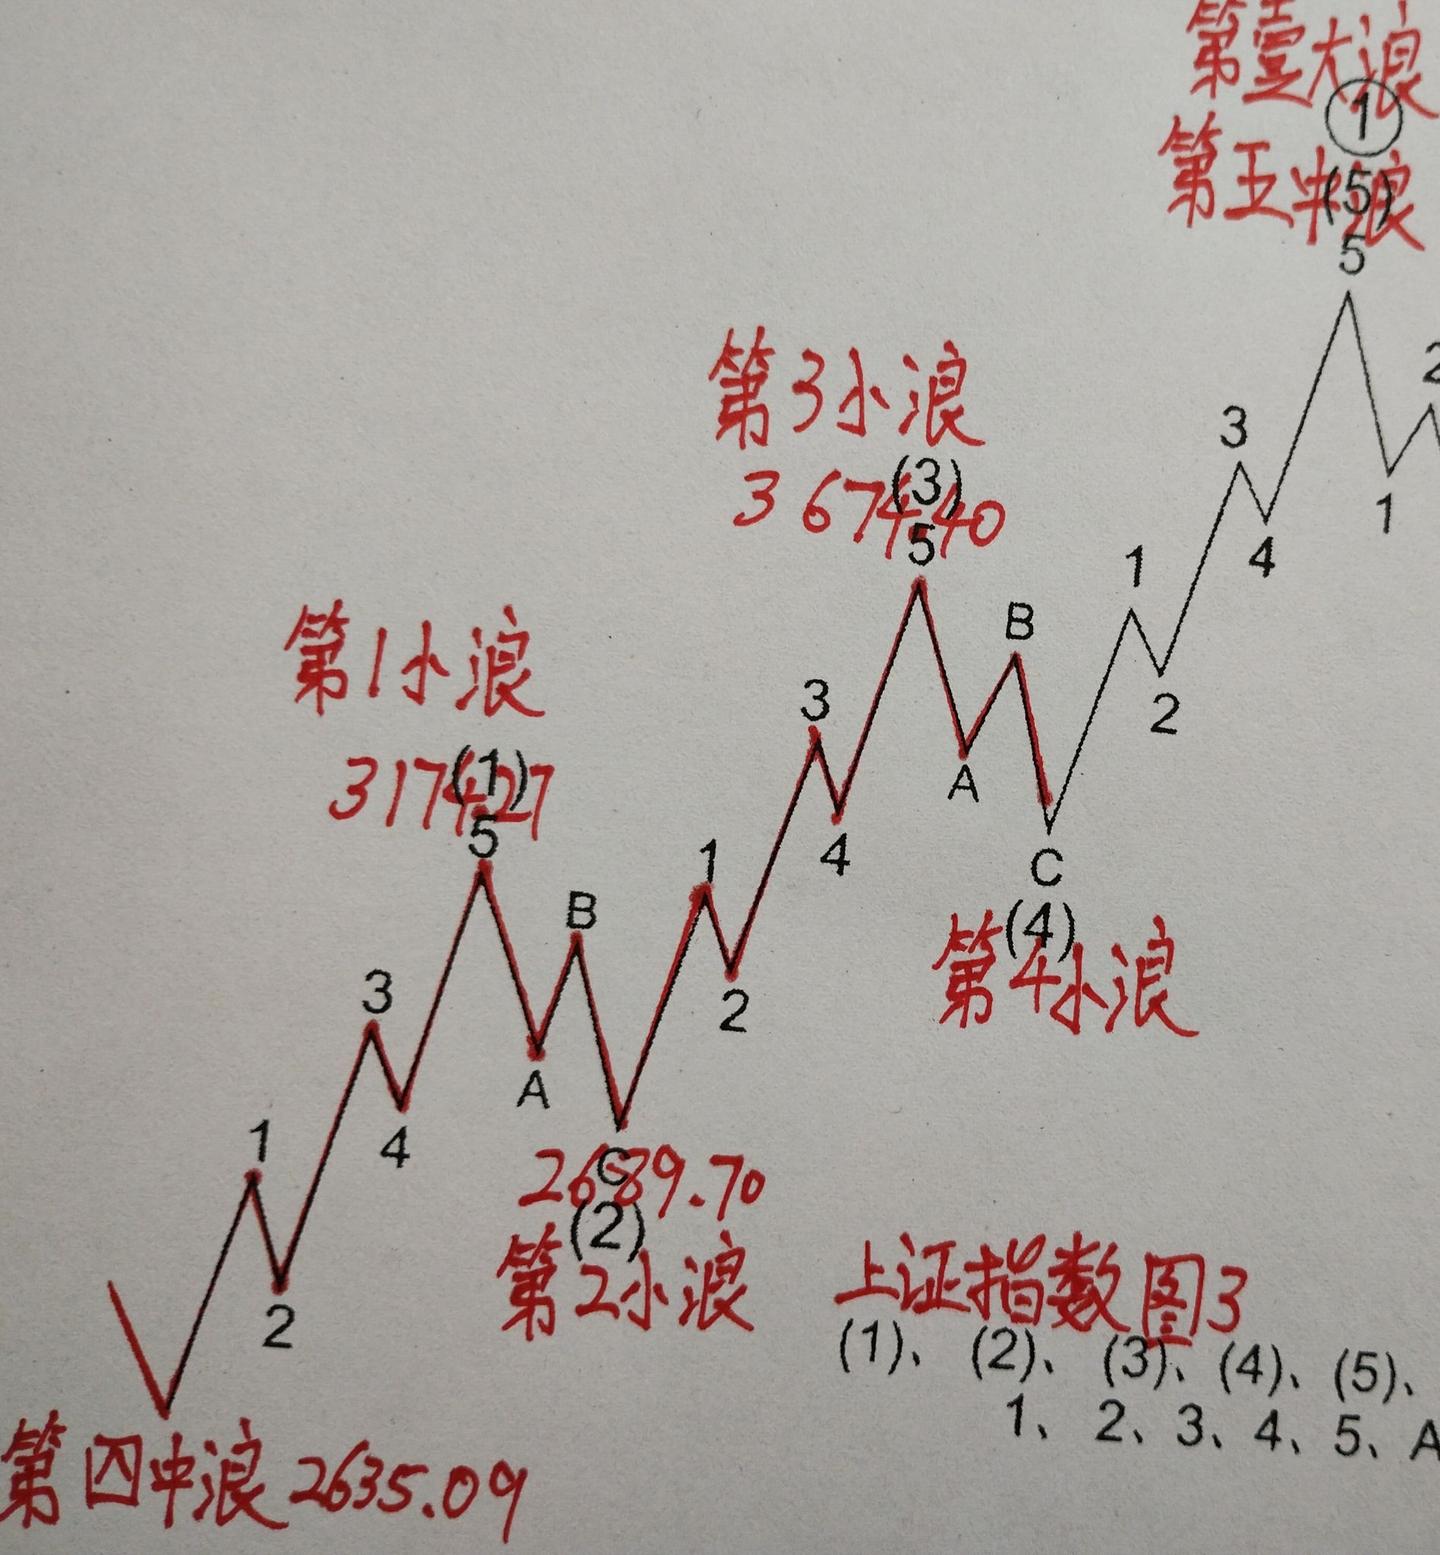 第壹大浪
①
第五中浪
(5)
5
2
3
4
1
第3小浪
(3)
3674.40
5
1
B
2
3
A
4
C
(4)
第4小浪
第1小浪
(1)
3174.27
5
1
B
2
3
A
4
C
2689.70
(2)
第2小浪
1
2
上证指数图3
(1)、(2)、(3)、(4)、(5)、
1、2、3、4、5、A
第四中浪2635.09